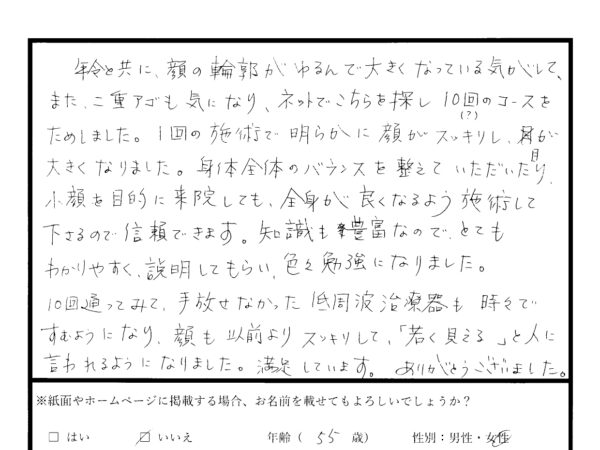 年令と共に、顔の輪郭がゆるんで大きくなっている気がして、
また、二重アゴも気になり、ネットでこちらを探し10回のコースを
(?)
ためしました。1回の施術で明らかに顔がスッキリし、目が
大きくなりました。身体全体のバランスを整えていただいたり、
小顔を目的に来院しても、全身が良くなるよう施術して
下さるので信頼できます。知識も豊富なので、とても
わかりやすく、説明してもらい、色々勉強になりました。
10回通ってみて、手放せなかった低周波治療器も時々で
すむようになり、顔も以前よりスッキリして、「若く見える」と人に
言われるようになりました。満足しています。ありがとうございました。
※紙面やホームページに掲載する場合、お名前を載せてもよろしいでしょうか？
□ はい ☑ いいえ 年齢（ 55 歳） 性別：男性・女性